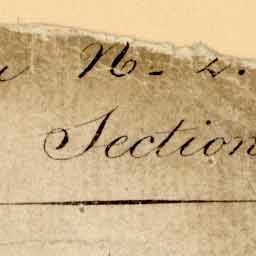 N- 4.
Section